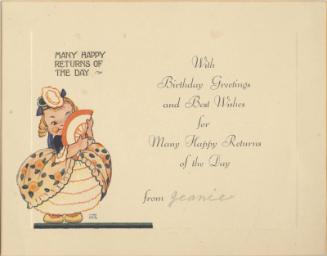 MANY HAPPY
RETURNS OF
THE DAY
With
Birthday Greetings
and Best Wishes
for
Many Happy Returns
of the Day
from Jeanie